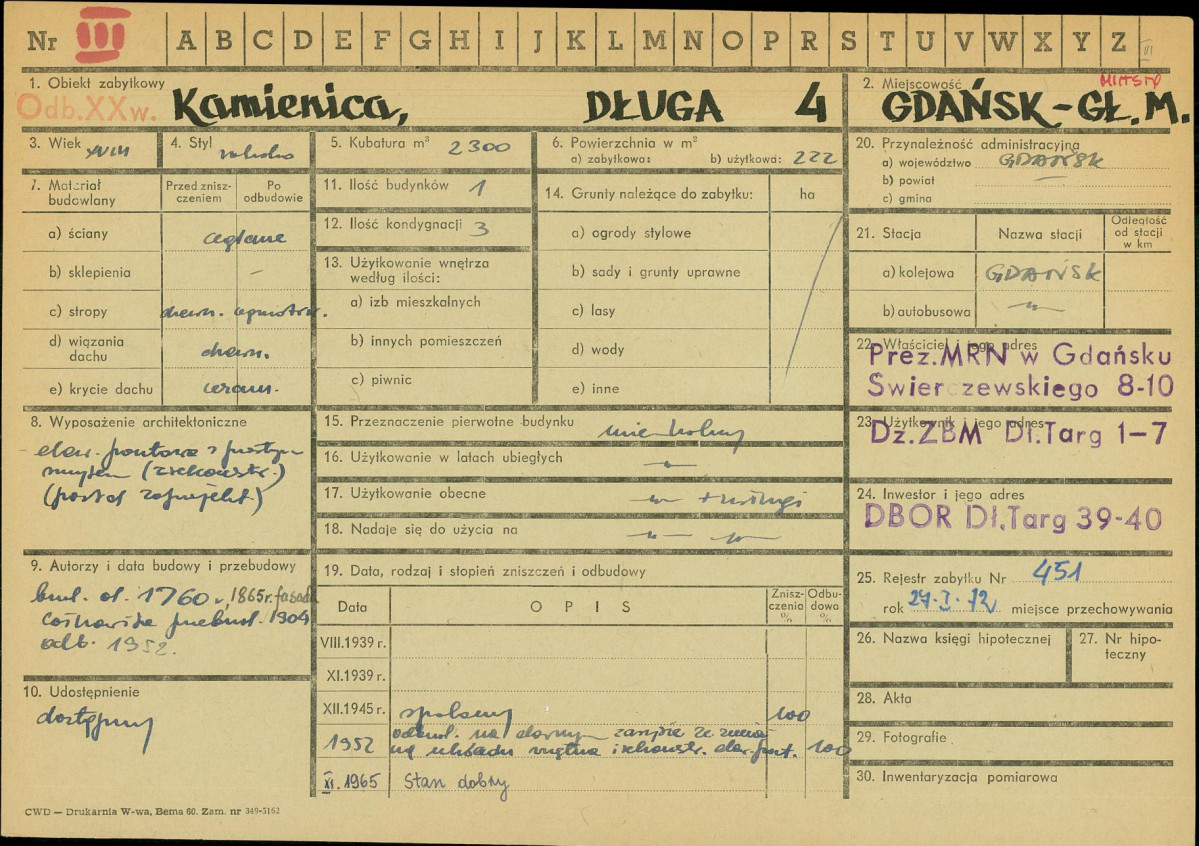 Nr III A B C D E F G H I J K L M N O P R S T U V W X Y Z VI
1. Obiekt zabytkowy
Odb.XXw. Kamienica, DŁUGA 4
2. Miejscowość MIASTO
GDAŃSK-GŁ.M.
3. Wiek XVIII
4. Styl rokoko
5. Kubatura m³ 2300
6. Powierzchnia w m²
a) zabytkowa: b) użytkowa: 222
20. Przynależność administracyjna
a) województwo GDAŃSK
b) powiat —
c) gmina
7. Materiał budowlany
Przed zniszczeniem
Po odbudowie
a) ściany ceglane
b) sklepienia –
c) stropy drewn. ogniotrw.
d) wiązania dachu drewn.
e) krycie dachu ceram.
11. Ilość budynków 1
12. Ilość kondygnacji 3
13. Użytkowanie wnętrza
według ilości:
a) izb mieszkalnych
b) innych pomieszczeń
c) piwnic
14. Grunty należące do zabytku: ha
a) ogrody stylowe
b) sady i grunty uprawne
c) lasy
d) wody
e) inne
21. Stacja Nazwa stacji Odległość od stacji w km
a) kolejowa GDAŃSK
b) autobusowa —"—
22. Właściciel i jego adres
Prez.MRN w Gdańsku
Świerczewskiego 8-10
8. Wyposażenie architektoniczne
elew. frontowa z
(zrekonstr.)
(portal zaprojekt.)
15. Przeznaczenie pierwotne budynku mieszkalny
16. Użytkowanie w latach ubiegłych —"—
17. Użytkowanie obecne —"— + usługi
18. Nadaje się do użycia na —"— —"—
23. Użytkownik i jego adres
Dz.ZBM Dł.Targ 1-7
24. Inwestor i jego adres
DBOR Dł.Targ 39-40
9. Autorzy i data budowy i przebudowy
bud. ok. 1760 r, 1865r. fasada
przebud. 1904
odb. 1952.
10. Udostępnienie
dostępny
19. Data, rodzaj i stopień zniszczeń i odbudowy
Data OPIS Zniszczenia % Odbudowa %
VIII.1939 r.
XI.1939 r.
XII.1945 r. spalony 100
1952 odbud. na dawnym zarysie ze zmia-
ną układu wnętrza i rekonstr. elew. front. 100
XI.1965 Stan dobry
25. Rejestr zabytku Nr 451
rok 27.I.72 miejsce przechowywania
26. Nazwa księgi hipotecznej
27. Nr hipoteczny
28. Akta
29. Fotografie
30. Inwentaryzacja pomiarowa
CWD — Drukarnia W-wa, Bema 60. Zam. nr 349-5162